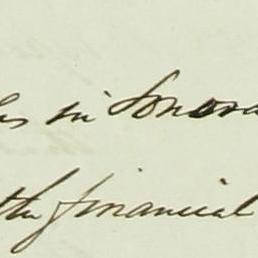 in Sonora
the financial